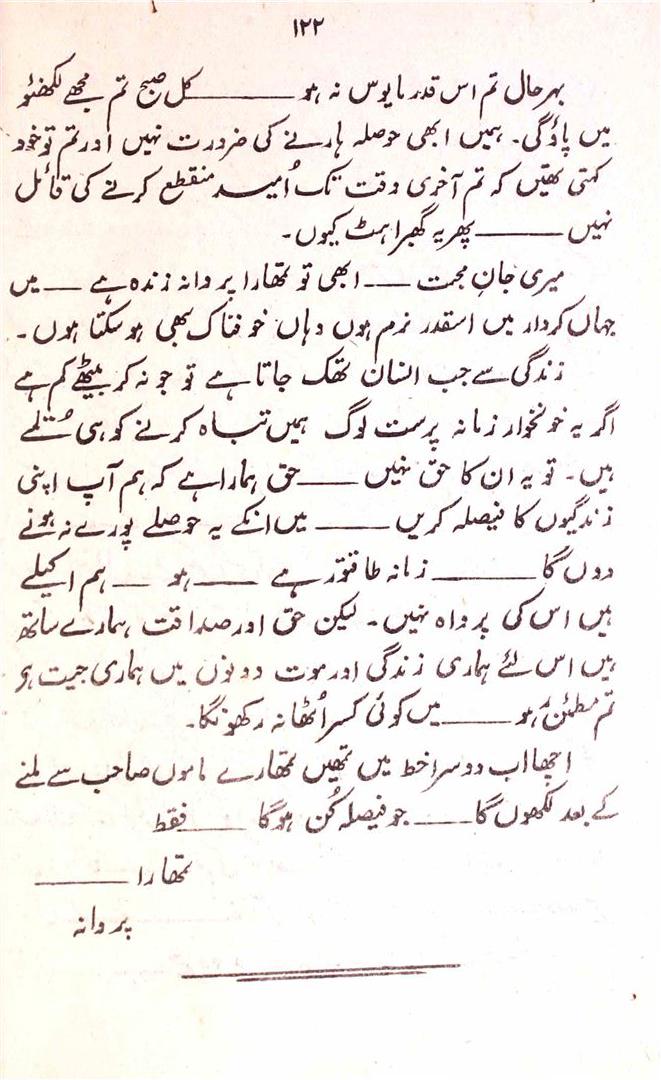 ۱۲۲
بہر حال تم اس قدر مایوس نہ ہو ــــــــ کل صبح تم مجھے لکھنؤ
میں پاؤگی۔ ہمیں ابھی حوصلہ ہارنے کی ضرورت نہیں اور تم تو خود
کہتی تھیں کہ تم آخری وقت تک اُمید منقطع کرنے کی قائل
نہیں ــــــــ پھر یہ گھبراہٹ کیوں۔
میری جانِ محبت ــــ ابھی تو تمھارا پروانہ زندہ ہے ــــ میں
جہاں کردار میں اسقدر نرم ہوں وہاں خوفناک بھی ہو سکتا ہوں۔
زندگی سے جب انسان تھک جاتا ہے تو جو نہ کر بیٹھے کم ہے
اگر یہ خونخوار زمانہ پرست لوگ ہمیں تباہ کرنے کو ہی تُلے
ہیں۔ تو یہ ان کا حق نہیں ــــــ حق ہمارا ہے کہ ہم آپ اپنی
زندگیوں کا فیصلہ کریں ــــــــ میں انکے یہ حوصلے پورے نہ ہونے
دوں گا ــــــــ زمانہ طاقتور ہے ــــــ ہو ــــ ہم اکیلے
ہیں اس کی پرواہ نہیں۔ لیکن حق اور صداقت ہمارے ساتھ
ہیں اس لئے ہماری زندگی اور موت دونوں میں ہماری جیت ہو
تم مطمئن ہو ــــــــ میں کوئی کسر اُٹھا نہ رکھونگا۔
اچھا اب دوسرا خط میں تمھیں تمھارے ماموں صاحب سے ملنے
کے بعد لکھوں گا ــــــ جو فیصلہ کُن ہوگا ــــــ فقط
تمھارا ــــــــ
پروانہ